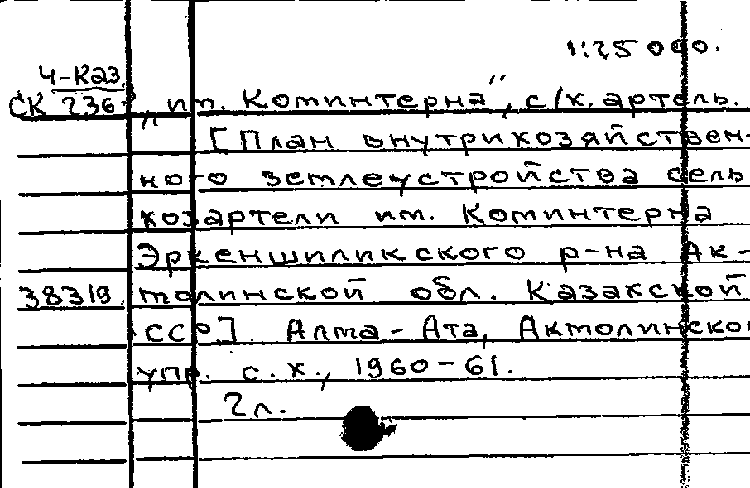 1:25 000.
4-Каз.
СК 236
„им. Коминтерна", с/х. артель.
[План внутрихозяйствен-
ного землеустройства сель
хозартели им. Коминтерна
Эркеншиликского р-на Ак-
38319 молинской обл. Казахской
ССР] Алма-Ата, Акмолинской
упр. с.х., 1960-61.
2л.